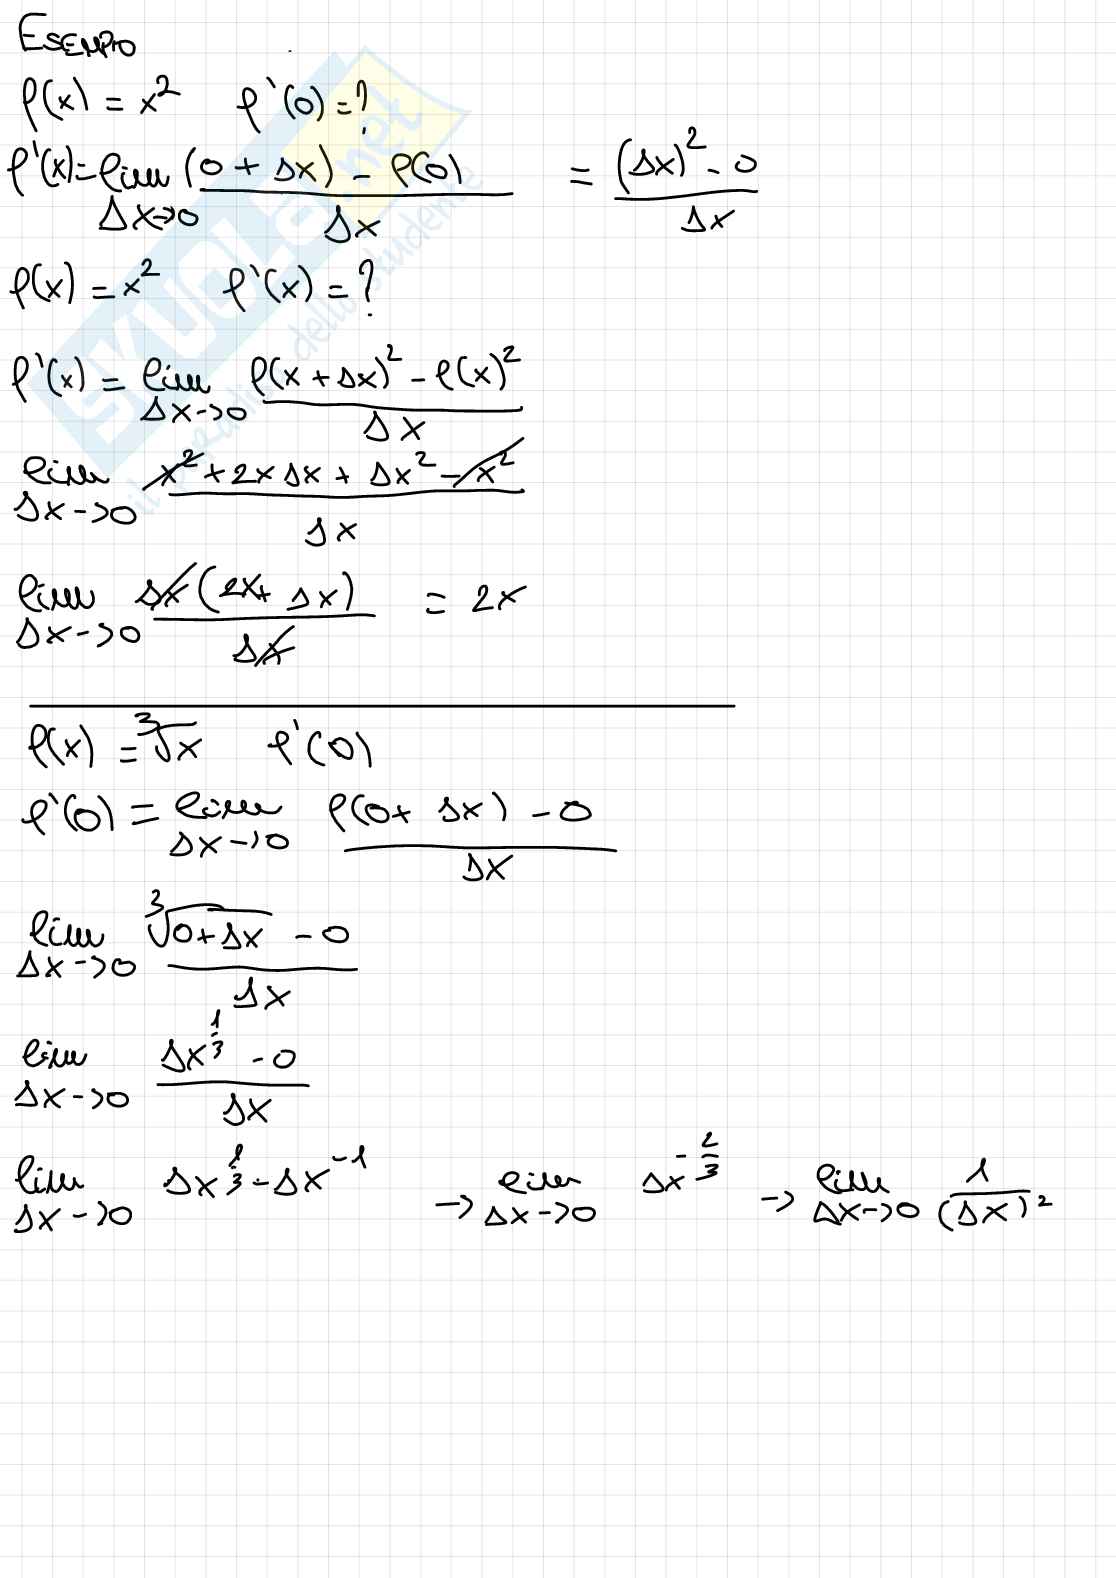 ESEMPIO
f(x) = x² f'(0) = ?
f'(x) = lim Δx→0 ((0 + Δx) - f(0)) / Δx = ((Δx)² - 0) / Δx
f(x) = x² f'(x) = ?
f'(x) = lim Δx→0 (f(x + Δx)² - f(x)²) / Δx
lim Δx→0 (x² + 2xΔx + Δx² - x²) / Δx
lim Δx→0 Δx(2x + Δx) / Δx = 2x
f(x) = ³√x f'(0)
f'(0) = lim Δx→0 (f(0 + Δx) - 0) / Δx
lim Δx→0 (³√(0+Δx) - 0) / Δx
lim Δx→0 (Δx^(1/3) - 0) / Δx
lim Δx→0 Δx^(1/3) - Δx^(-1) → lim Δx→0 Δx^(-2/3) → lim Δx→0 1 / (Δx)²
SKUOLA.net
il paradiso dello studente